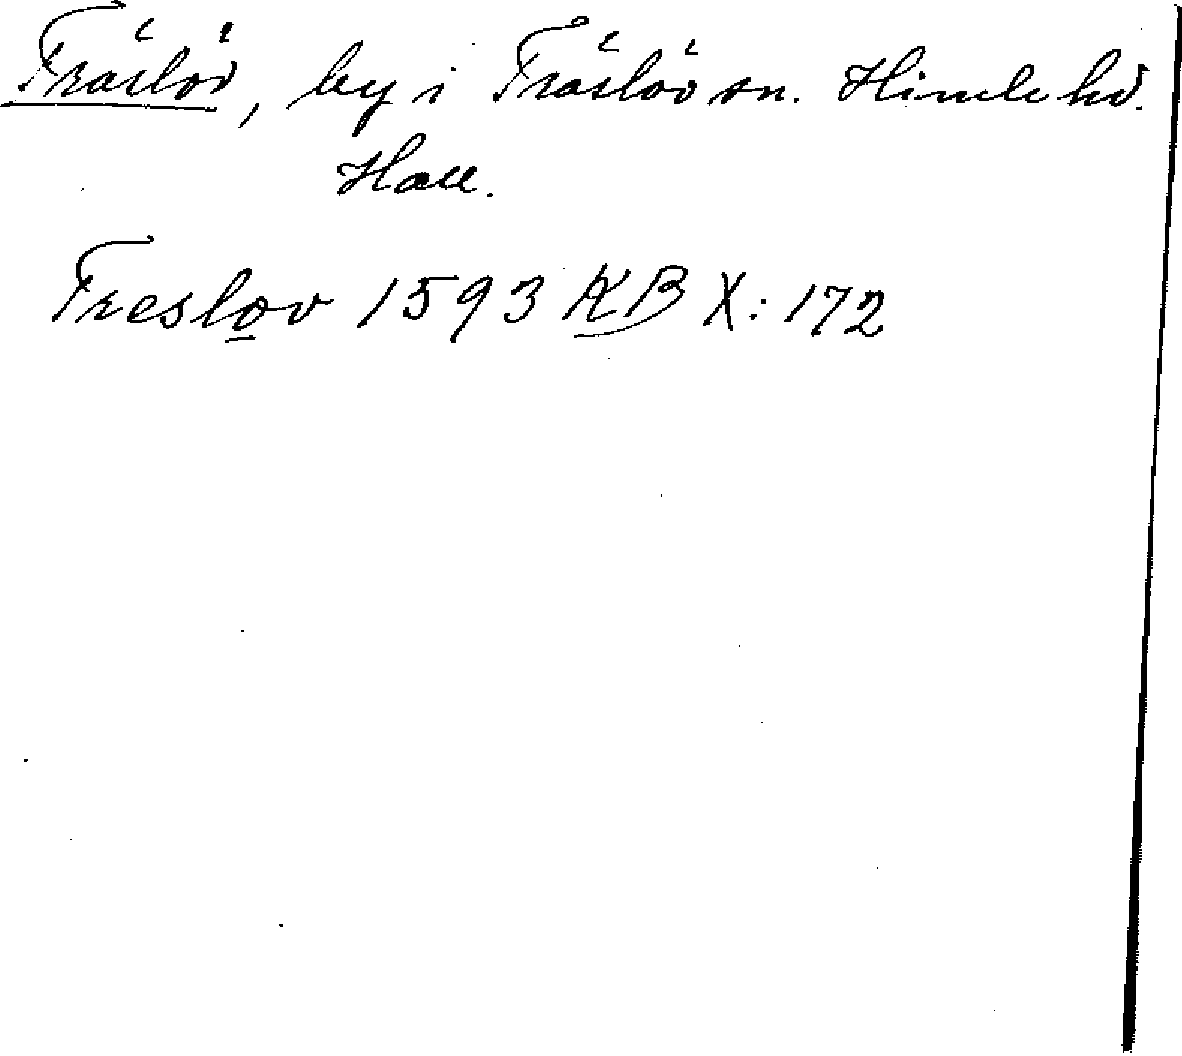 Träslöv, by i Träslöv sn. Himle hd.
Hall.
Treslov 1593 KB X: 172